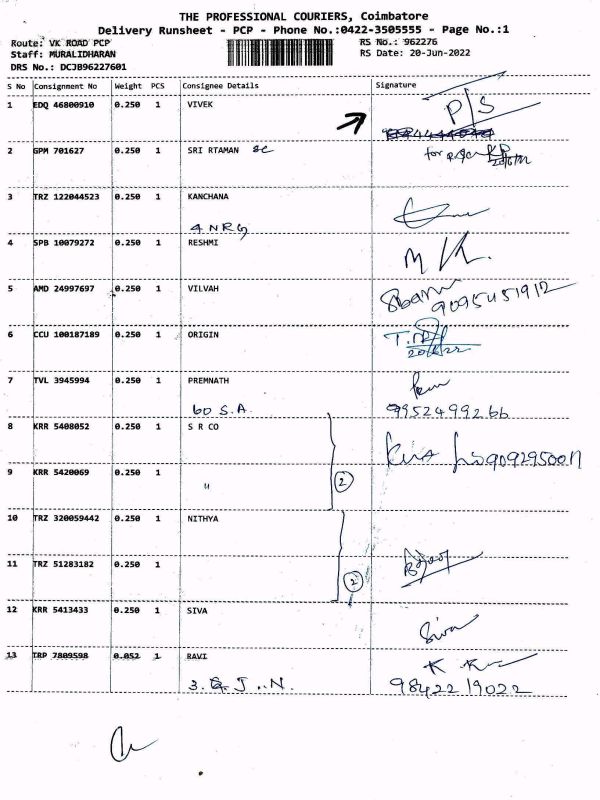 THE PROFESSIONAL COURIERS, Coimbatore
Delivery Runsheet - PCP - Phone No.:0422-3505555 - Page No.:1
Route: VK ROAD PCP RS No.: 962276
Staff: MURALIDHARAN RS Date: 20-Jun-2022
DRS No.: DCJB96227601
S No Consignment No Weight PCS Consignee Details Signature
1 EDQ 46800910 0.250 1 VIVEK P/S
2 GPM 701627 0.250 1 SRI RTAMAN SC for
3 TRZ 122044523 0.250 1 KANCHANA
4 NRG
4 SPB 10079272 0.250 1 RESHMI
5 AMD 24997697 0.250 1 VILVAH 9095451912
6 CCU 100187189 0.250 1 ORIGIN
20/6/22
7 TVL 3945994 0.250 1 PREMNATH
60 S.A. 9952499266
8 KRR 5408052 0.250 1 S R CO
9 KRR 5420069 0.250 1 〃 2
10 TRZ 320059442 0.250 1 NITHYA
11 TRZ 51283182 0.250 1 2
12 KRR 5413433 0.250 1 SIVA Siva
13 TRP 7809598 0.052 1 RAVI
3. J.N. 98422 19022